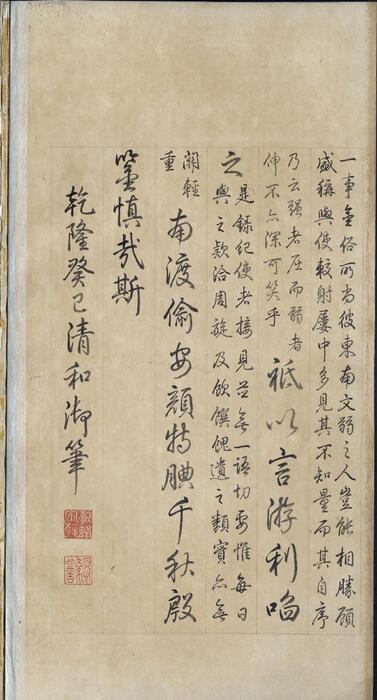 一事金俗所尚彼東南文弱之人豈能相勝顧
盛稱與使較射屢中多見其不知量而其自序
乃云强者屈而弱者
伸不亦深可笑乎
祗以言游利啗
之
是錄紀使者接見並無一語切要惟每日
與之款洽周旋及飲饌餽遺之類實亦無
關輕
重
南渡偷安顏特腆千秋殷
鑒慎哉斯
乾隆癸巳清和御筆